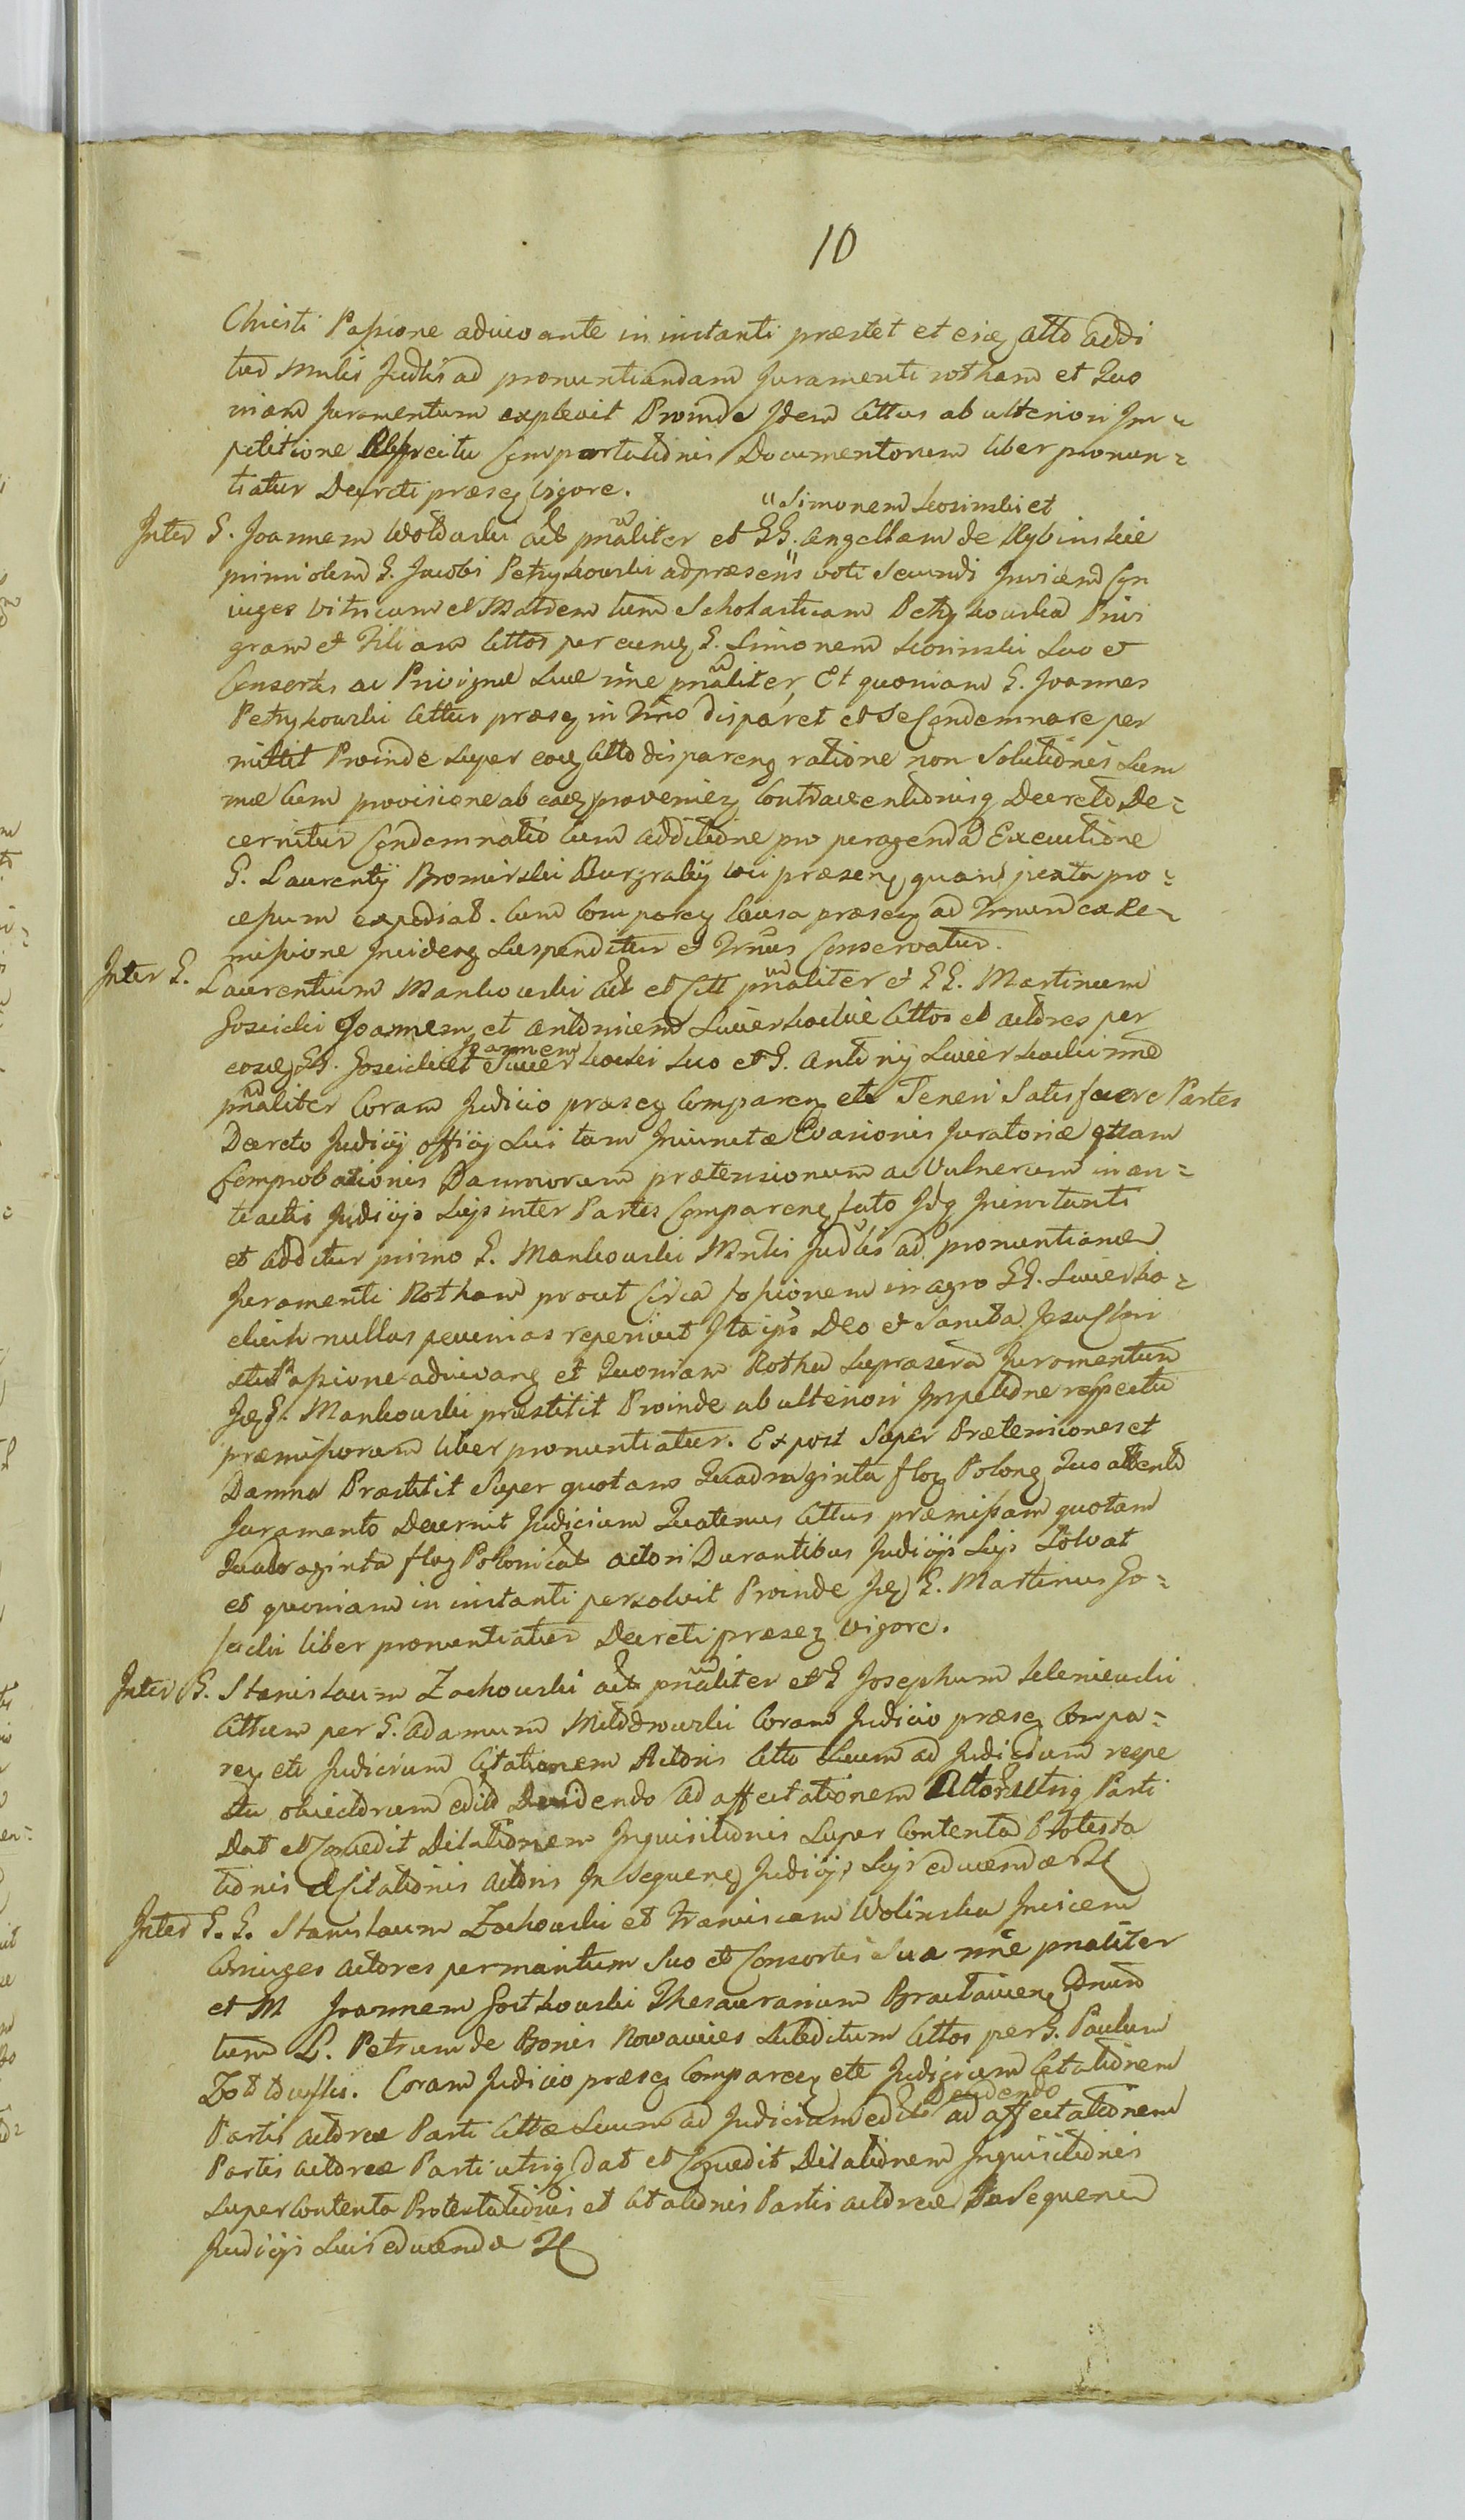 10
Christi Passione adiuvante in instanti præstet et eiæ atto addi
tur Mnlis Judlis ad pronuntiandam Juramenti rotham et Quo
niam Juramentum explevit Proinde Idem Cittus ab ulteriori Im-
petitione Respectu Comportationis Documentorum liber pronun=
tiatur Decreti præseq vigore.
"Simonem Kosinski et
Inter G. Joannem Wolduski act pnaliter et GG. Angellam de Rybinskie
primi olim G. Jacobi Petrykowski ad præsens" voti Secundi Invicem Con
iuges Vitricum et Matrem tum Scholasticam Petrykowska Privi
gnam et Filiam Cittos per eumq G. Simonem Kosinski Suo et
Consortis ac Privignæ Suæ nne pnaliter, Et quoniam G. Joannes
Petrykowski Cittus præseq in Tmno disparet et Se Condemnare per
mittit Proinde Super eoq Citto dispareng ratione non Solutionis Sum
mæ Cum provisione ab eaq provenieq Contraventionisq Decreto De=
cernitur Condemnatio Cum additione pro peragenda Executione
G. Laurentij Bromirski Burgrabij loci præseng quam juxta pro=
cessum expediat. Cum Compareq Causa præseq ad Tmnum ex Re=
missione Incideng Suspenditur et Tmnus Conservatur.
Inter G. Laurentium Mankowski Act et Citt pnaliter et GG. Martinum
Gosicki Joannem et Antonium Swierkockie Cittos et actores per
eosq GG. Gosicki et Joannem Swierkocki Suo et G. Antonij Swierkocki nne
pnaliter Coram Judicio præseq Compareq etc Teneri Satisfacere Partes
Decreto Judicij officij Sui tam Iniunctæ Evasionis Juratoriæ qtam
Comprobationis Damnorum prætensionum ac Vulnerum in an=
teactis Judicijs Sijs inter Partes Compareng lato Idq In instanti
et additur primo G. Mankowski Mnlis Judlis ad pronuntianm
Juramenti Rotham prout Circa fossionem in agro GG. Swierko=
ckich nullas pecunias reperiivit Ita ipso Deo et Sancta Jesu Chri
sti Passione adiuvang et Quoniam Rotha Suprascrip Juramentum
Iq G. Mankowski præstitit Proinde ab ulteriori Impetitne respectu
præmissorum liber pronuntiatur. Ex post Super Prætensiones et
Damna Præstitit Super quotam Quadraginta floq Polonq Quo attento
Juramento Decernit Judicium Quatenus Cittus præmissam quotam
Quadraginta floq Polonicat actori Durantibus Judicijs Sijs Solvat
et quoniam in instanti persolvit Proinde Iq G. Martinus Go=
sicki liber pronuntiatur Decreti præseq vigore.
Inter G. Stanislaum Zochowski act pnaliter et G Josephum Seleniewski
Cittum per G. Adamum Mlodzowski Coram Judicio præseq Compa=
req etc Judicium Citationem Actoris Citto Suum ad Judicium respe
ctu obiectorum edito Deudendo ad affectationem Actoris utriq Parti
Dat et Concedit Dilationem Inquisitionis Super Contenta Protesta
tionis et Citationis Actoris In Sequenq Judicijs Sijs educendæ etc
Inter G. G. Stanislaum Zochowski et Franciscam Wolinska Invicem
Coniuges actores per maritum Suo et Consortis Suæ nne pnaliter
et M Joannem Gostkowski Thesaurarium Braclavieng Dnum
tum L. Petrum de Bonis Nowawies Subditum Cittos per G. Paulum
Coram Judicio præseq Compareq etc Judicium Citationem
Partis Actoreæ Parti Cittæ Suum ad Judicium edito Deudendo ad affectationem
Partis actoreæ Parti utriq dat et Concedit Dilationem Inquisitionis
Super Contenta Protestationis et Citationis Partis actoreæ In Sequenq
Judicijs Suis educendæ etc